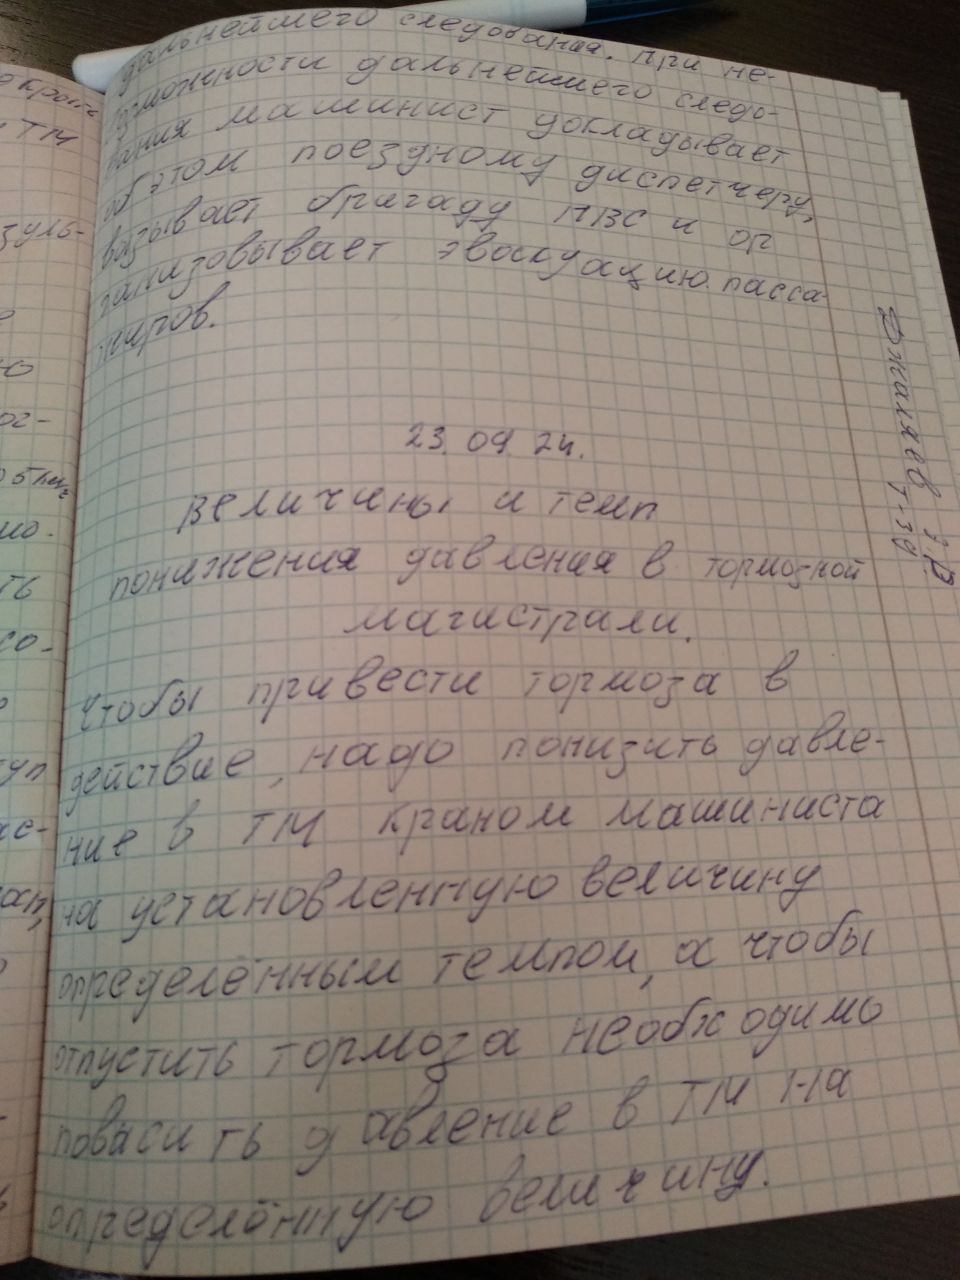 дальнейшего следования. При не-
возможности дальнейшего следо-
вания машинист докладывает
об этом поездному диспетчеру,
вызывает бригаду ПВС и ор
ганизовывает эвоскуацию пасса-
жиров.
23.09.24.
Величины и темп
понижения давления в тормозной
магистрали.
Чтобы привести тормоза в
действие, надо понизить давле-
ние в ТМ краном машиниста
на установленную величину
определённым темпом, а чтобы
отпустить тормоза необходимо
поваситть давление в ТМ на
определённую величину.